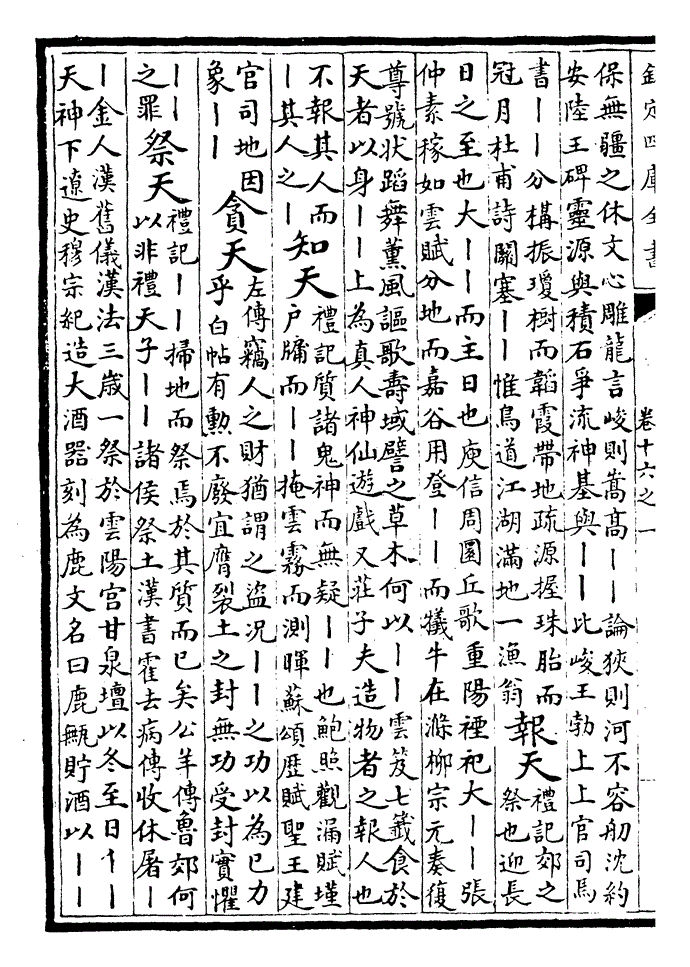 欽定四庫全書
卷十六之一
保無疆之休文心雕龍言峻則嵩高||論狹則河不容舠沈約
安陸王碑靈源與積石爭流神基與||比峻王勃上上官司馬
書||分構振瓊樹而韜霞帶地疏源握珠胎而報天禮記郊之
冠月杜甫詩關塞||惟鳥道江湖滿地一漁翁祭也迎長
日之至也大||而主日也庾信周圜丘歌重陽禋祀大||張
仲素稼如雲賦分地而嘉谷用登||而犧牛在滌柳宗元奏復
尊號狀蹈舞薰風謳歌壽域譬之草木何以||雲笈七籤食於
天者以身||上為真人神仙遊戲又莊子夫造物者之報人也
不報其人而知天禮記質諸鬼神而無疑||也鮑照觀漏賦墐
|其人之|戸牖而||掩雲霧而測暉蘇頌歴賦聖王建
官司地因貪天左傳竊人之財猶謂之盜况||之功以為已力
象||乎白帖有勲不廢宜膺裂土之封無功受封實懼
||祭天禮記||掃地而祭焉於其質而已矣公羊傳魯郊何
之罪以非禮天子||諸侯祭土漢書霍去病傳收休屠|
|金人漢舊儀漢法三歲一祭於雲陽宮甘泉壇以冬至日||
天神下遼史穆宗紀造大酒器刻為鹿文名曰鹿甒貯酒以||